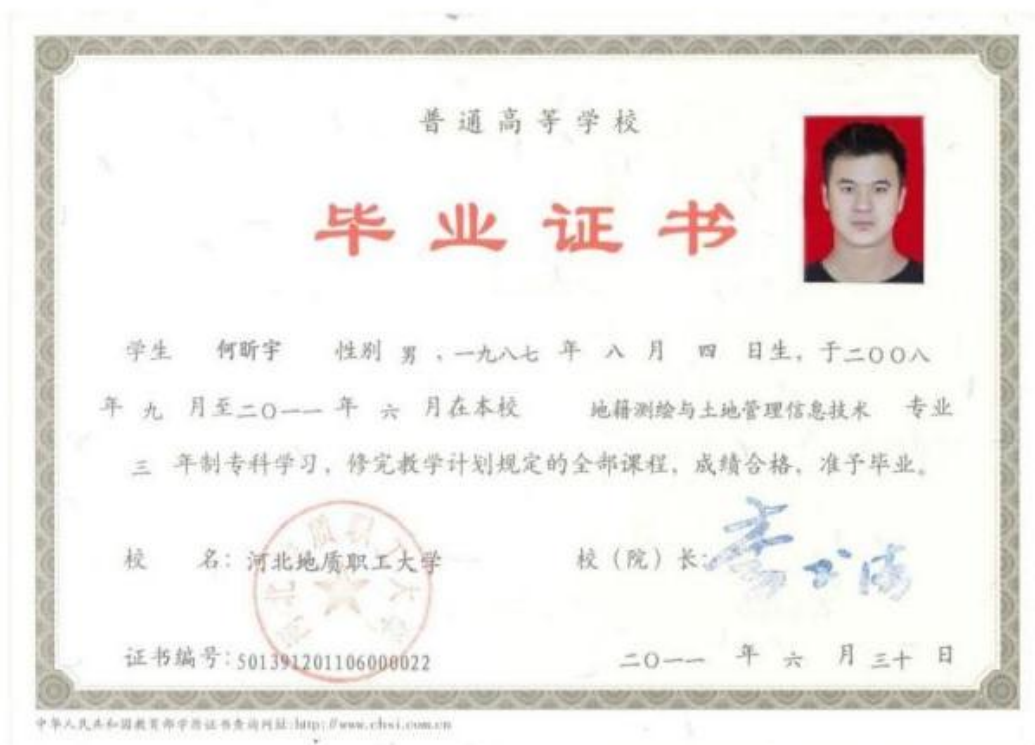 普通高等学校
毕业证书
学生 何昕宇 性别 男 ,一九八七 年 八 月 四 日生,于二〇〇八
年 九 月至二〇一一 年 六 月在本校 地籍测绘与土地管理信息技术 专业
三 年制专科学习,修完教学计划规定的全部课程,成绩合格,准予毕业。
校 名:河北地质职工大学 校(院)长:
证书编号:501391201106000022 二〇一一 年 六 月 三十 日
中华人民共和国教育部学历证书查询网址:http://www.chsi.com.cn